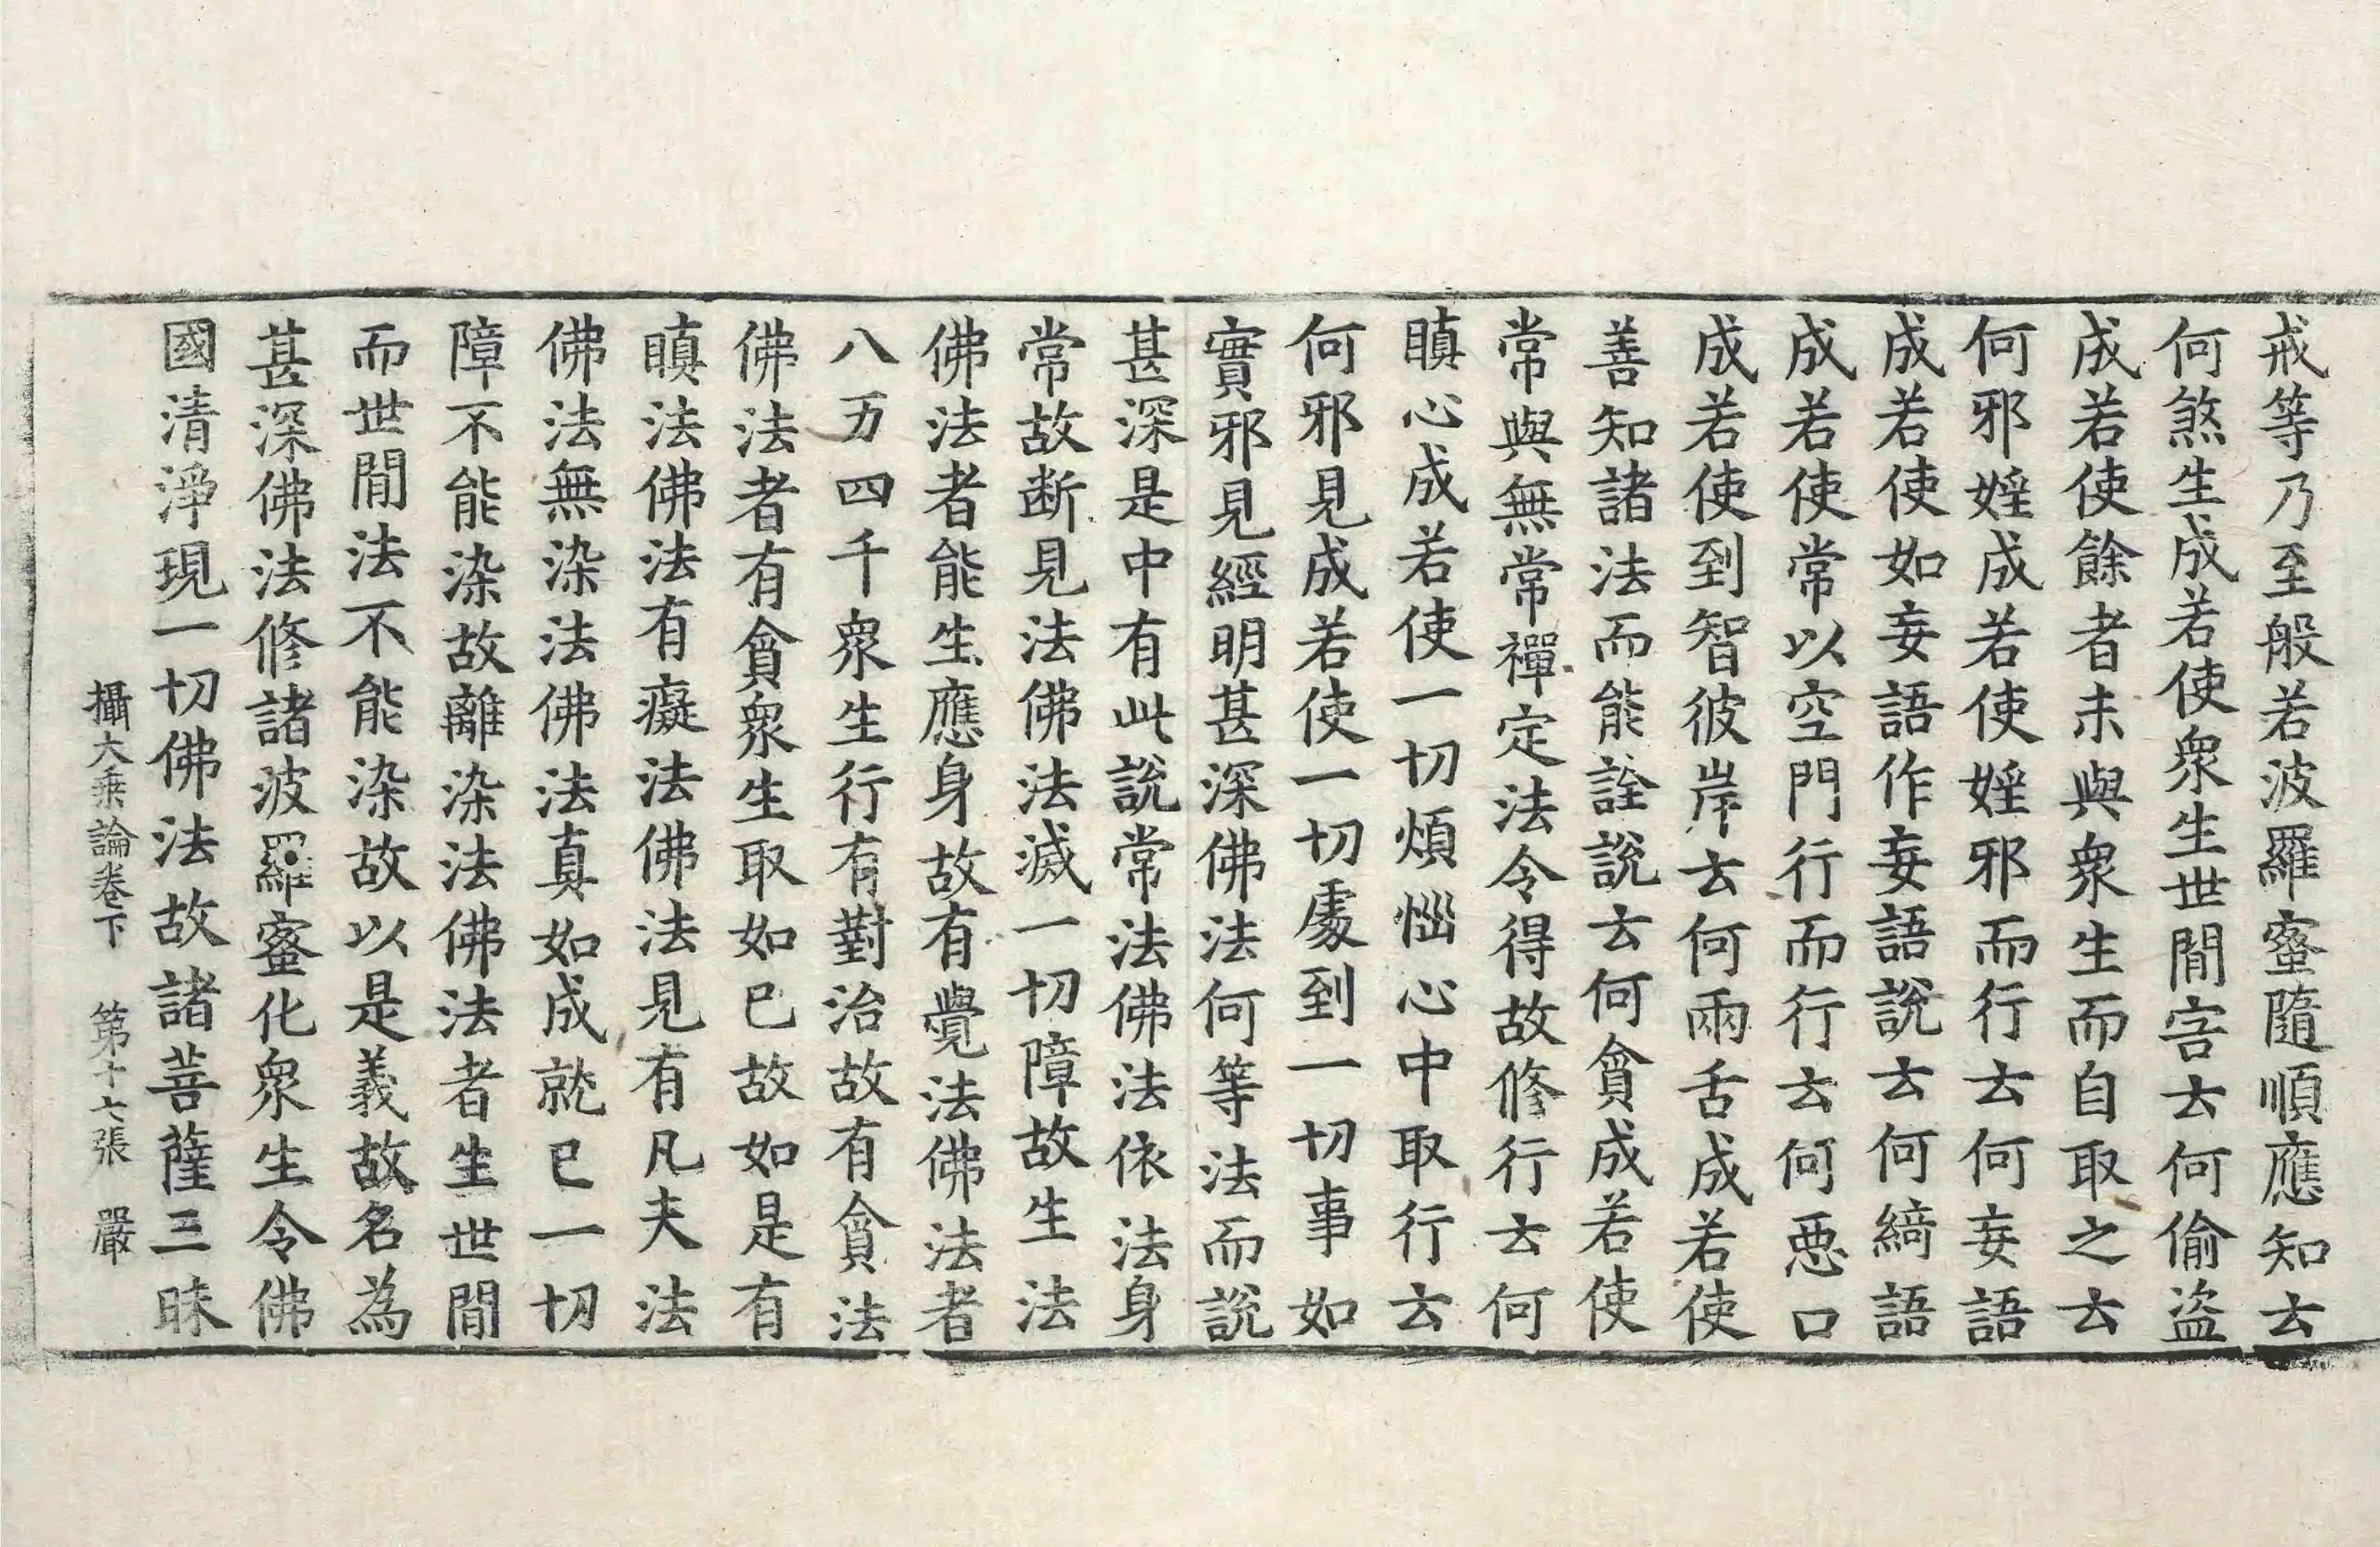 戒等乃至般若波羅蜜隨順應知去
何煞生成若使衆生世間㝘去何偷盗
成若使餘者未與衆生而自取之去
何邪婬成若使婬邪而行去何妄語
成若使如妄語作妄語說去何綺語
成若使常以空門行而行去何惡口
成若使到智彼岸去何兩舌成若使
善知諸法而能詮說去何貪成若使
常與無常禪定法令得故修行去何
瞋心成若使一切煩惱心中取行去
何邪見成若使一切處到一切事如
實邪見經明甚深佛法何等法而說
甚深是中有此說常法佛法依法身
常故断見法佛法滅一切障故生法
佛法者能生應身故有覺法佛法者
八万四千衆生行有對治故有貪法
佛法者有貪衆生取如已故如是有
瞋法佛法有癡法佛法見有凡夫法
佛法無染法佛法真如成就已一切
障不能染故離染法佛法者生世間
而世間法不能染故以是義故名為
甚深佛法修諸波羅蜜化衆生令佛
國清淨現一切佛法故諸菩薩三昧
攝大乘論卷下 第十六張 嚴